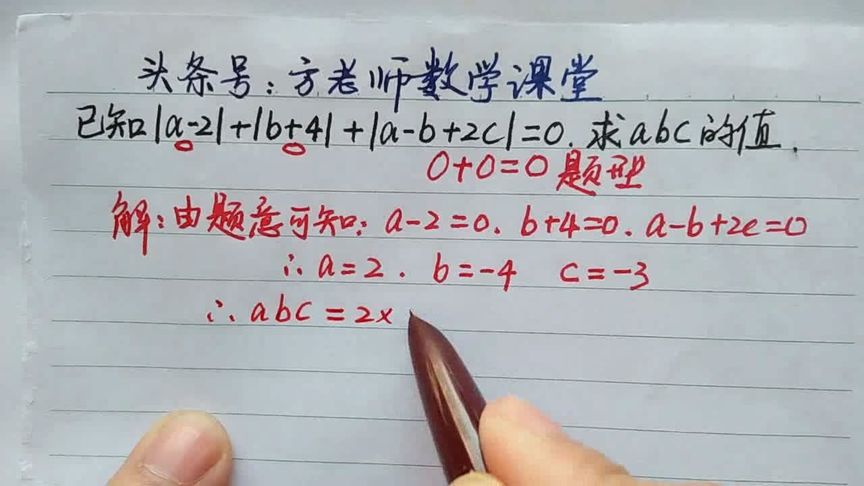 头条号：方老师数学课堂
已知|a-2|+|b+4|+|a-b+2c|=0.求abc的值.
0+0=0题型
解：由题意可知：a-2=0.b+4=0.a-b+2c=0
∴a=2.b=-4 c=-3
∴abc=2×